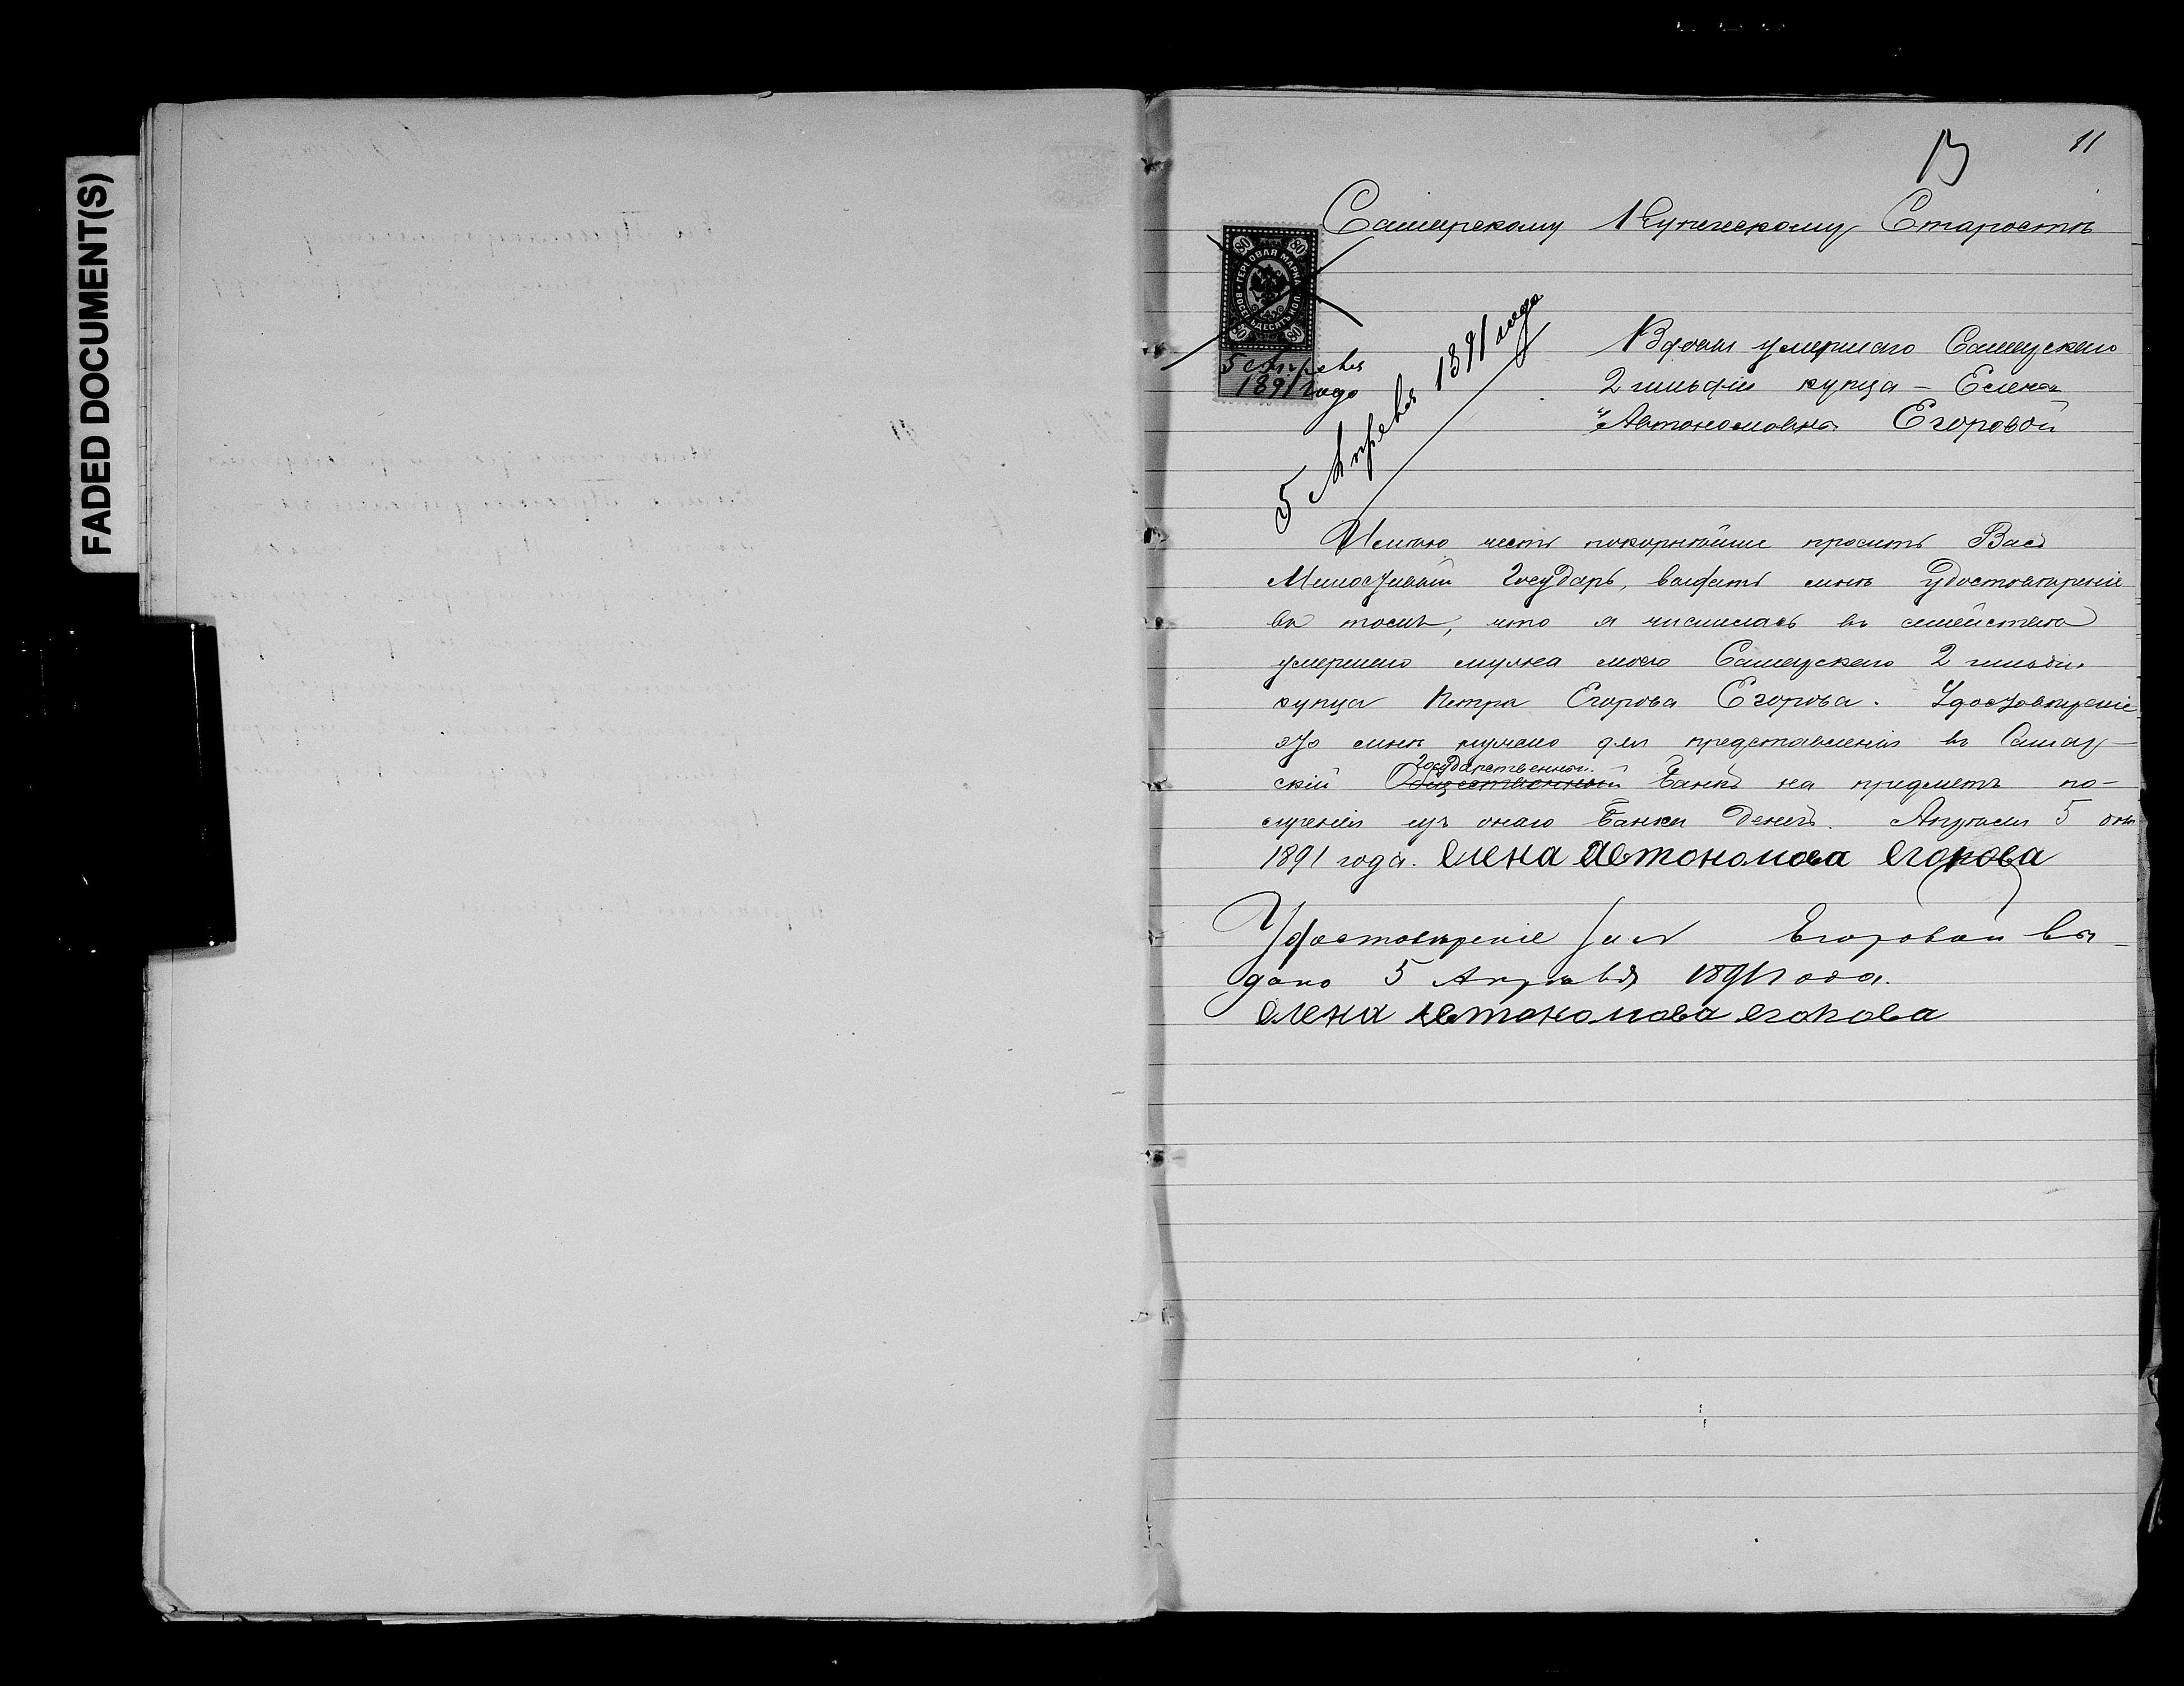 FADED DOCUMENT(S)
11
13
Самарскому Купеческому Старостѣ
80 80
ГЕРБОВАЯ МАРКА
ВОСЕМЬДЕСЯТЪ КОП.
80 80
5 Апреля
1891 года
5 Апреля 1891 года
Вдовы умершаго Самарскаго
2 гильдіи купца – Елена
Автономовна Егоровой
Имѣю честь покорнѣйше просить Васъ
Милостивый Государь, выдать мнѣ удостовѣреніе
въ томъ, что я числилась въ семействѣ
умершаго мужа моего Самарскаго 2 гильдіи
купца Петра Егорова Егорова. Удостовѣреніе
это мнѣ нужно для представленія въ Самар-
Государственный
скій Общественный Банкъ на предметъ по-
лученія изъ онаго Банка денегъ. Апрѣля 5 дня
1891 года. Елена Автономова Егорова
Удостовѣреніе Егоровой вы-
дано 5 Апрѣля 1891 года.
Елена Автономова Егорова